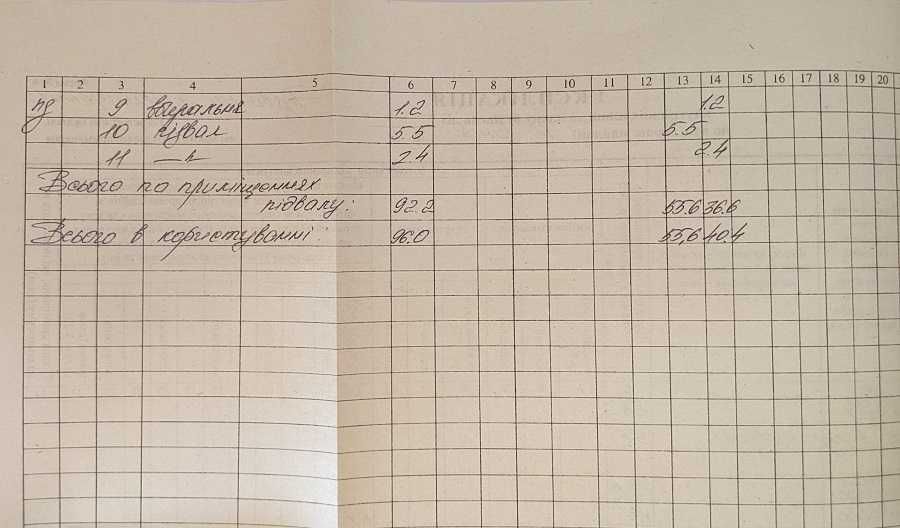 1 2 3 4 5 6 7 8 9 10 11 12 13 14 15 16 17 18 19 20
пд 9 вбиральня 1.2 1.2
10 підвал 5.5 5.5
11 —"— 2.4 2.4
Всього по приміщеннях
підвалу: 92.2 55.6 36.6
Всього в користуванні: 96.0 55,6 40.4